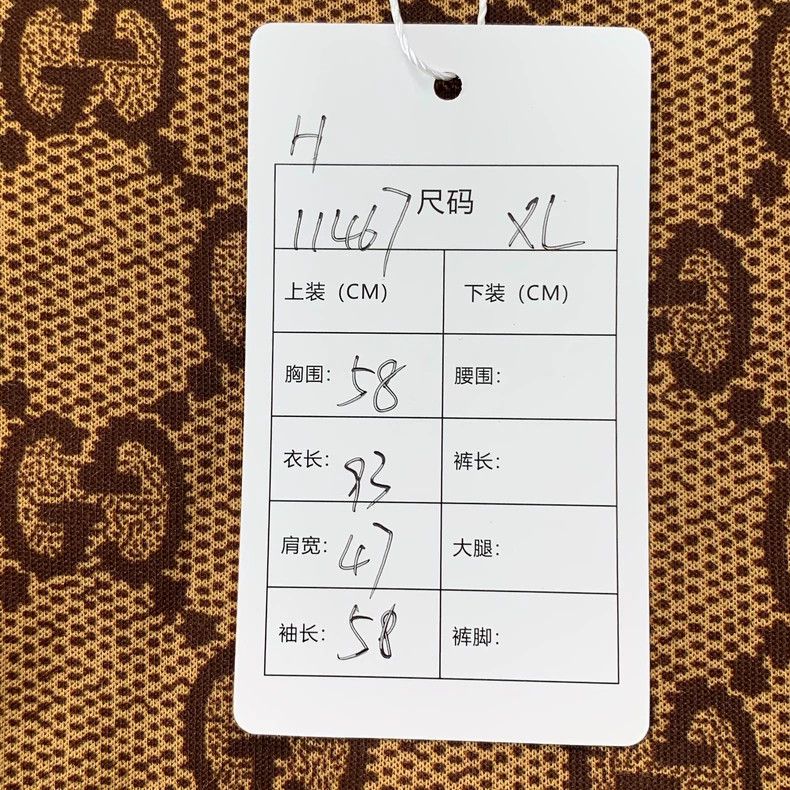 H
11467 尺码 XL
上装（CM） 下装（CM）
胸围: 58 腰围:
衣长: 裤长:
肩宽: 47 大腿:
袖长: 58 裤脚: